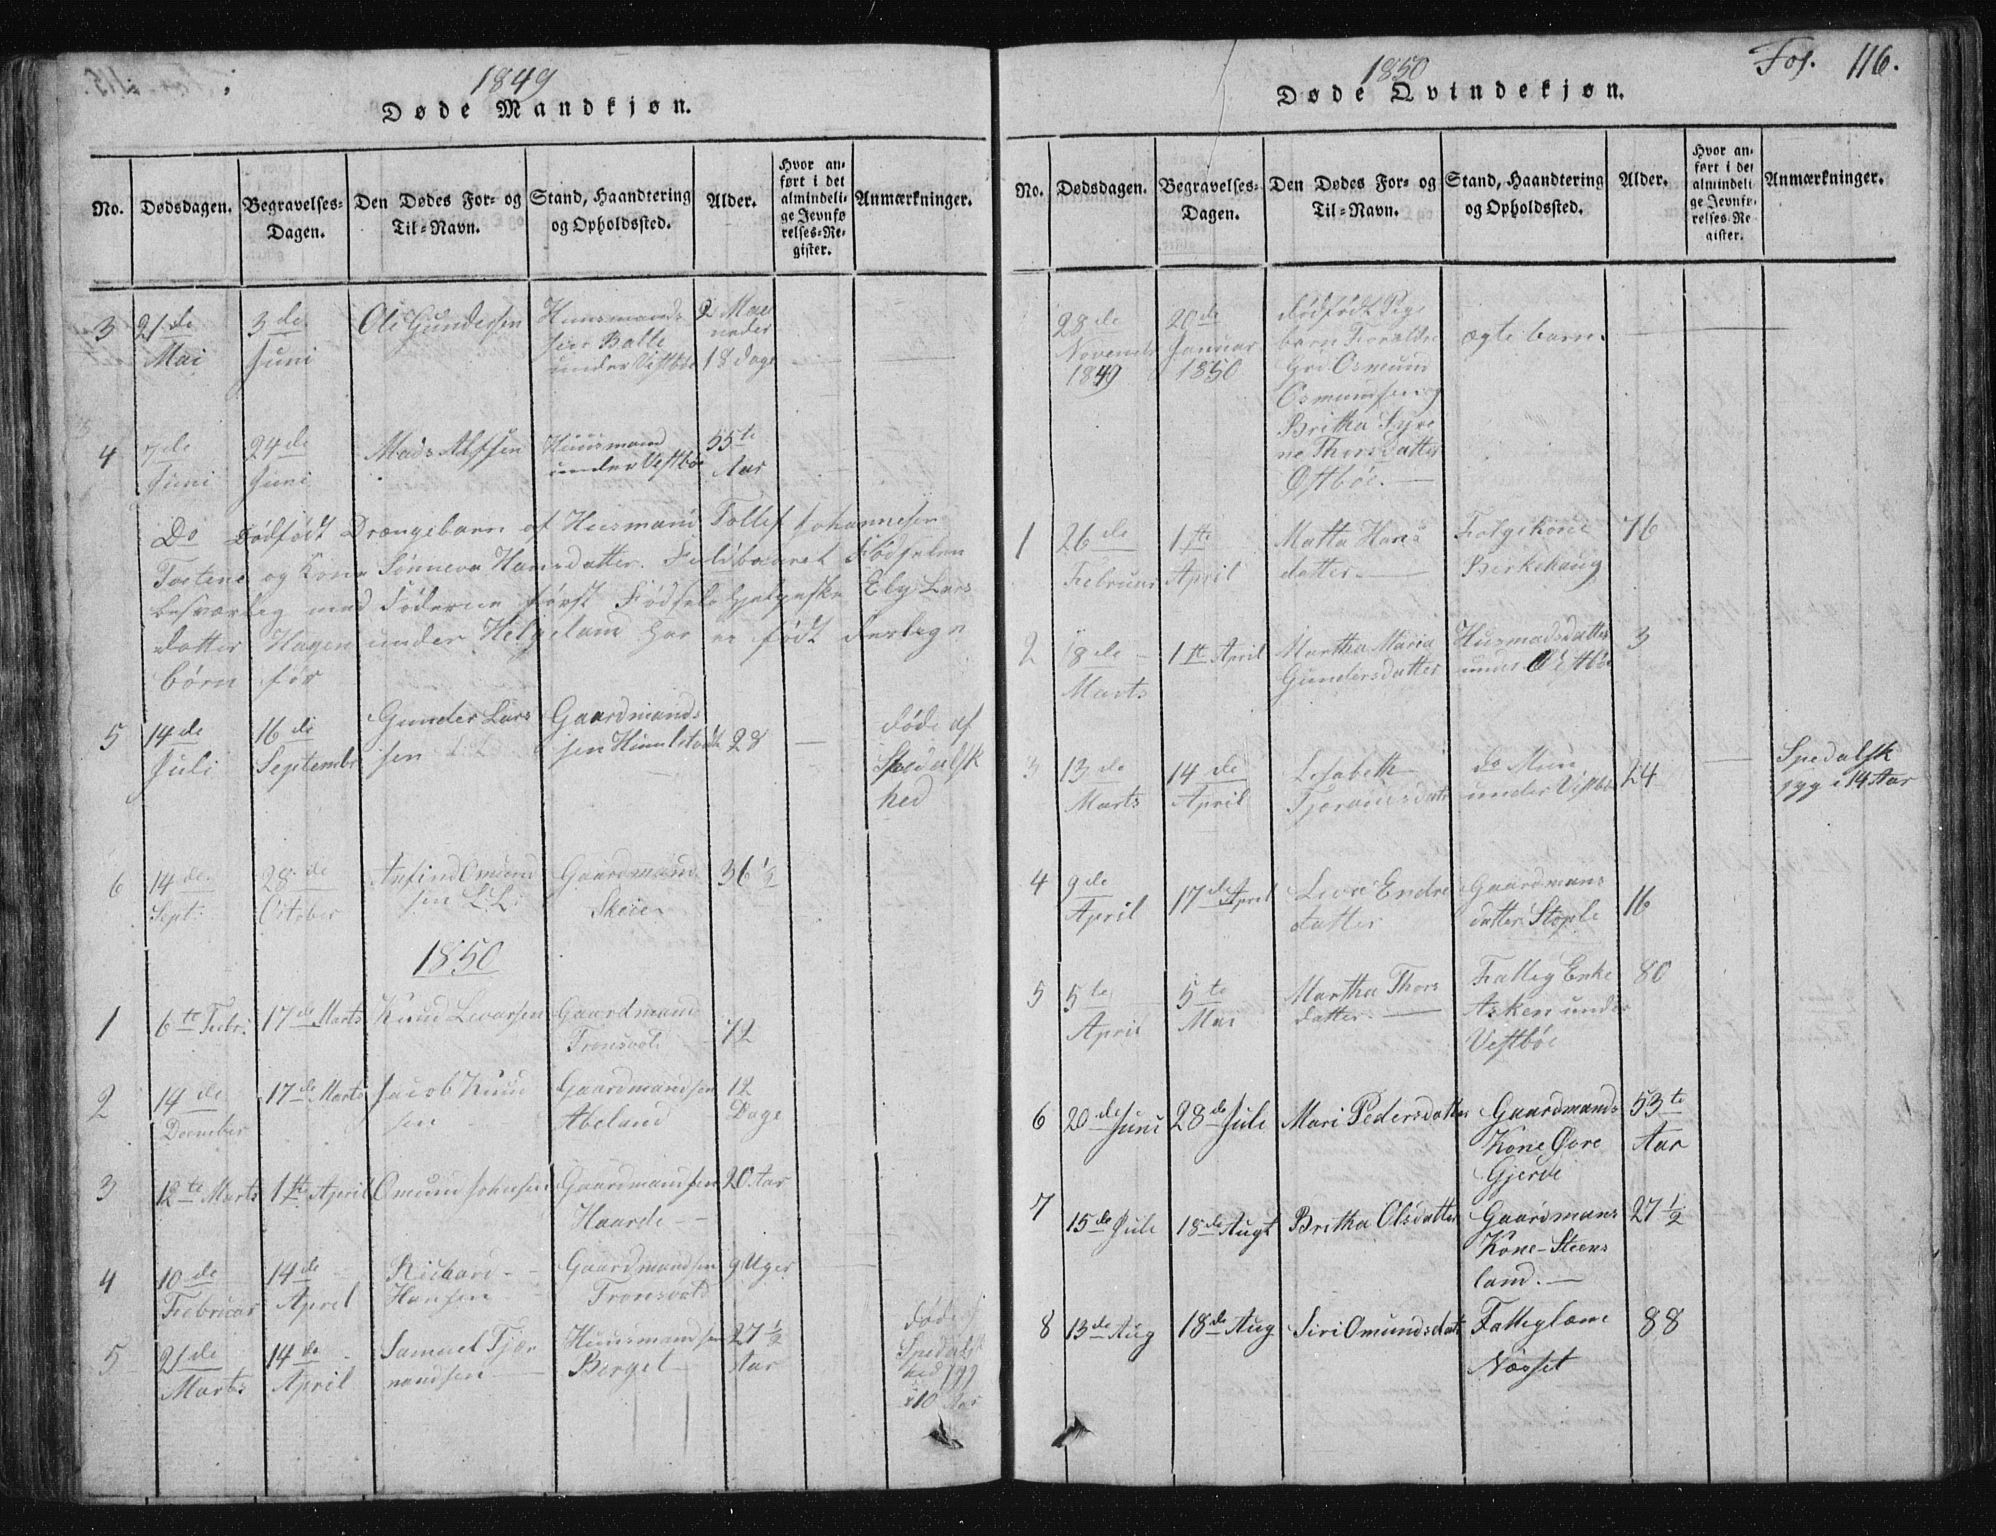 1849
Døde Mandkjøn.
No. Dødsdagen. Begravelses-Dagen. Den Dødes For- og Til-Navn. Stand, Haandtering og Opholdssted. Alder. Hvor anført i det almindelige Jevnførelses-Register. Anmærkninger.
3 21de Mai 3de Juni Ole Gundersen Huusmands under Vestbøe 18 Dage
4 7de Juni 24de Juni Mads Alfsen Huusmand under Vestbøe 55te Aar
Do Dødfødt Drængebarn af Huusmand Tollef Johannesen
og Kone Sønneva Hansdatter. Fødselen
besværlig med Fødderne først Fødsels Ely Lars
datter Hagen under Helgeland har født
børn før
5 14de Juli 16de Septembr Gunder Larssen Gaardmands 28 døde af Spedalskhed
6 14de Sept: 28de October Anfind Omundsen Gaardmand Skeie 36 1/2
1850
1 6te Febr: 17de Marts Knud Levorsen Gaardmand Tronsvole 72
2 14de December 17de Marts Jacob Knudsen Gaardmandsen Abeland 12 Dage
3 12te Marts 1ste April Omund Johnsen Gaardmandsen Haarde 20 Aar
4 10de Februar 14de April Richard Hansen Gaardmandsen Tronsvole 9 Uger
5 21de Marts 14de April Samuel Tjørnandsen Huusmandsen Berget 27 1/2 Aar døde af Spedalskhed i 10 Aar
1850
Fol. 116.
Døde Qvindekjøn.
No. Dødsdagen. Begravelses-Dagen. Den Dødes For- og Til-Navn. Stand, Haandtering og Opholdssted. Alder. Hvor anført i det almindelige Jevnførelses-Register. Anmærkninger.
28de November 1849 20de Januar 1850 dødfødt Pigebarn Forældre Osmund Osmundsen og Britha Thorsdatter Østbøe. ægte barn.
1 26de Februar 1ste April Matta Hansdatter Folgekone Birkehaug 76
2 18de Marts 1ste April Martha Maria Gundersdatter Husmandsdatter under 3
3 13de Marts 14de April Lisabeth do under Vestbø 24 Spedalsk syg i 14 Aar
4 9de April 17de April Endredatter Gaardmans datter Stople 16
5 5te April 5te Mai Martha Thorsdatter Fattig Enke Asken under Vestbøe 80
6 20de Juni 28de Juli Mari Pedersdatter Gaardmands Kone Øvre Gjerde 53te Aar
7 15de Juli 18de Augt Britha Olsdatter Gaardmans Kone Steensland. 27 1/2
8 13de Aug 18de Aug Siri Omundsdatter Fatteglem Næsset 88